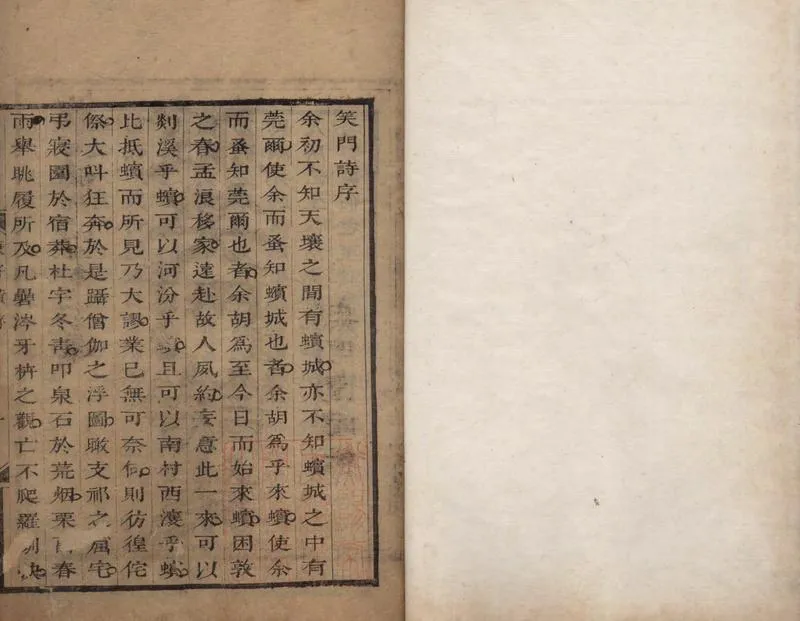 笑門詩序
余初不知天壤之間有蠙城亦不知蠙城之中有
莞爾使余而蚤知蠙城也者余胡為乎來蠙使余
而蚤知莞爾也者余胡為至今日而始來蠙困敦
之春孟浪移家遠赴故人夙約妄意此一來可以
剡溪乎蠙可以河汾乎蠙且可以南村西濠乎蠙
比抵蠙而所見乃大謬業已無可奈何則彷徨侘
傺大叫狂奔於是躡僧伽之浮圖瞰支祁之窟宅
弔寢園於宿莽杜宇冬青叩泉石於荒烟栗里春
雨舉眺履所及凡罍涔牙枿之觀亡不爬羅剔抉